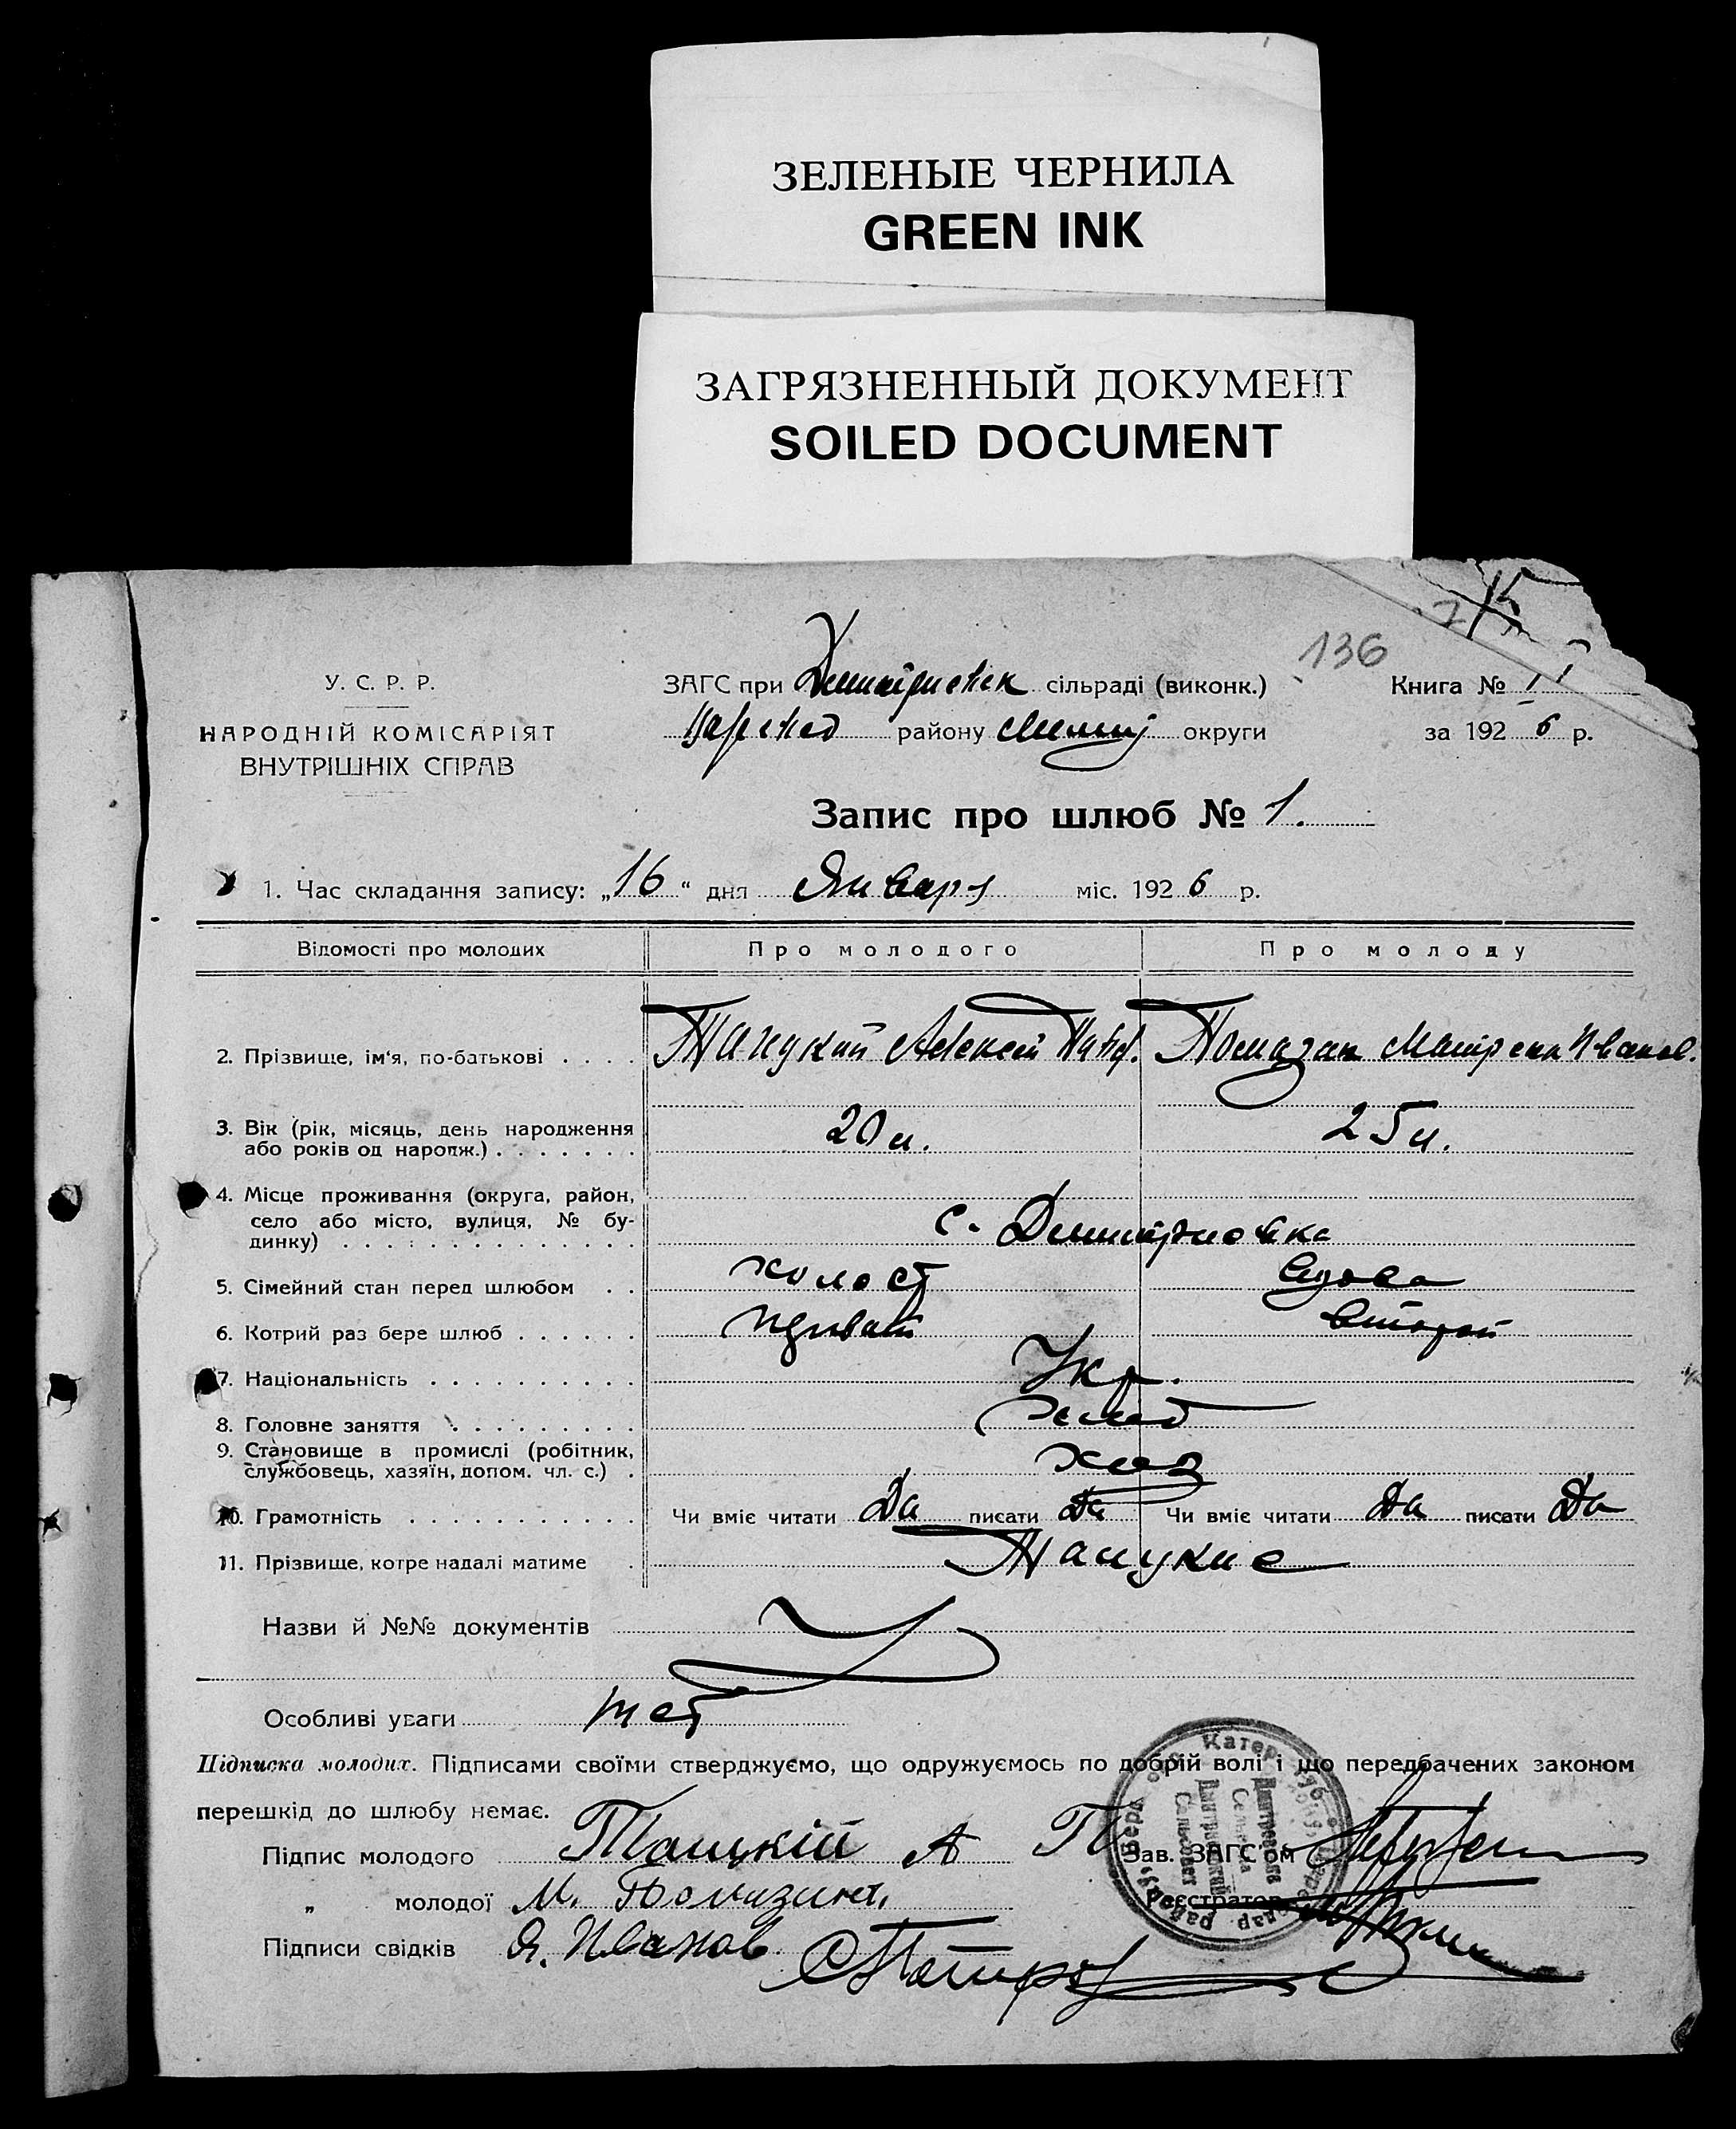 ЗЕЛЕНЫЕ ЧЕРНИЛА
GREEN INK
ЗАГРЯЗНЕННЫЙ ДОКУМЕНТ
SOILED DOCUMENT
136
У. С. Р. Р.
НАРОДНІЙ КОМІСАРІЯТ
ВНУТРІШНІХ СПРАВ
ЗАГС при Дмитриевск сільраді (виконк.)
району округи
Книга №
за 1926 р.
Запис про шлюб № 1.
1. Час складання запису: „16“ дня Января міс. 1926 р.
Відомості про молодих Про молодого Про молоду
2. Прізвище, ім'я, по-батькові . . . . Алексей Помазан Матрена Иванов.
3. Вік (рік, місяць, день народження
або років од народж.) . . . . . . . 20 л. 25 л.
4. Місце проживання (округа, район,
село або місто, вулиця, № бу-
динку) . . . . . . . . . . . . . с. Дмитриевка
5. Сімейний стан перед шлюбом . . холост вдова
6. Котрий раз бере шлюб . . . . . . первый второй
7. Національність . . . . . . . . . . Укр.
8. Головне заняття . . . . . . . . . хлеб
9. Становище в промислі (робітник,
службовець, хазяїн, допом. чл. с.) . хоз
10. Грамотність . . . . . . . . . . . Чи вміє читати Да писати Да Чи вміє читати Да писати Да
11. Прізвище, котре надалі матиме .
Назви й №№ документів
Особливі уваги нет
Підписка молодих. Підписами своїми стверджуємо, що одружуємось по добрій волі і що передбачених законом
перешкід до шлюбу немає.
Підпис молодого Тацкій А П Зав. ЗАГС'ом
„ молодої М. Реєстратор
Підписи свідків Я. Иванов